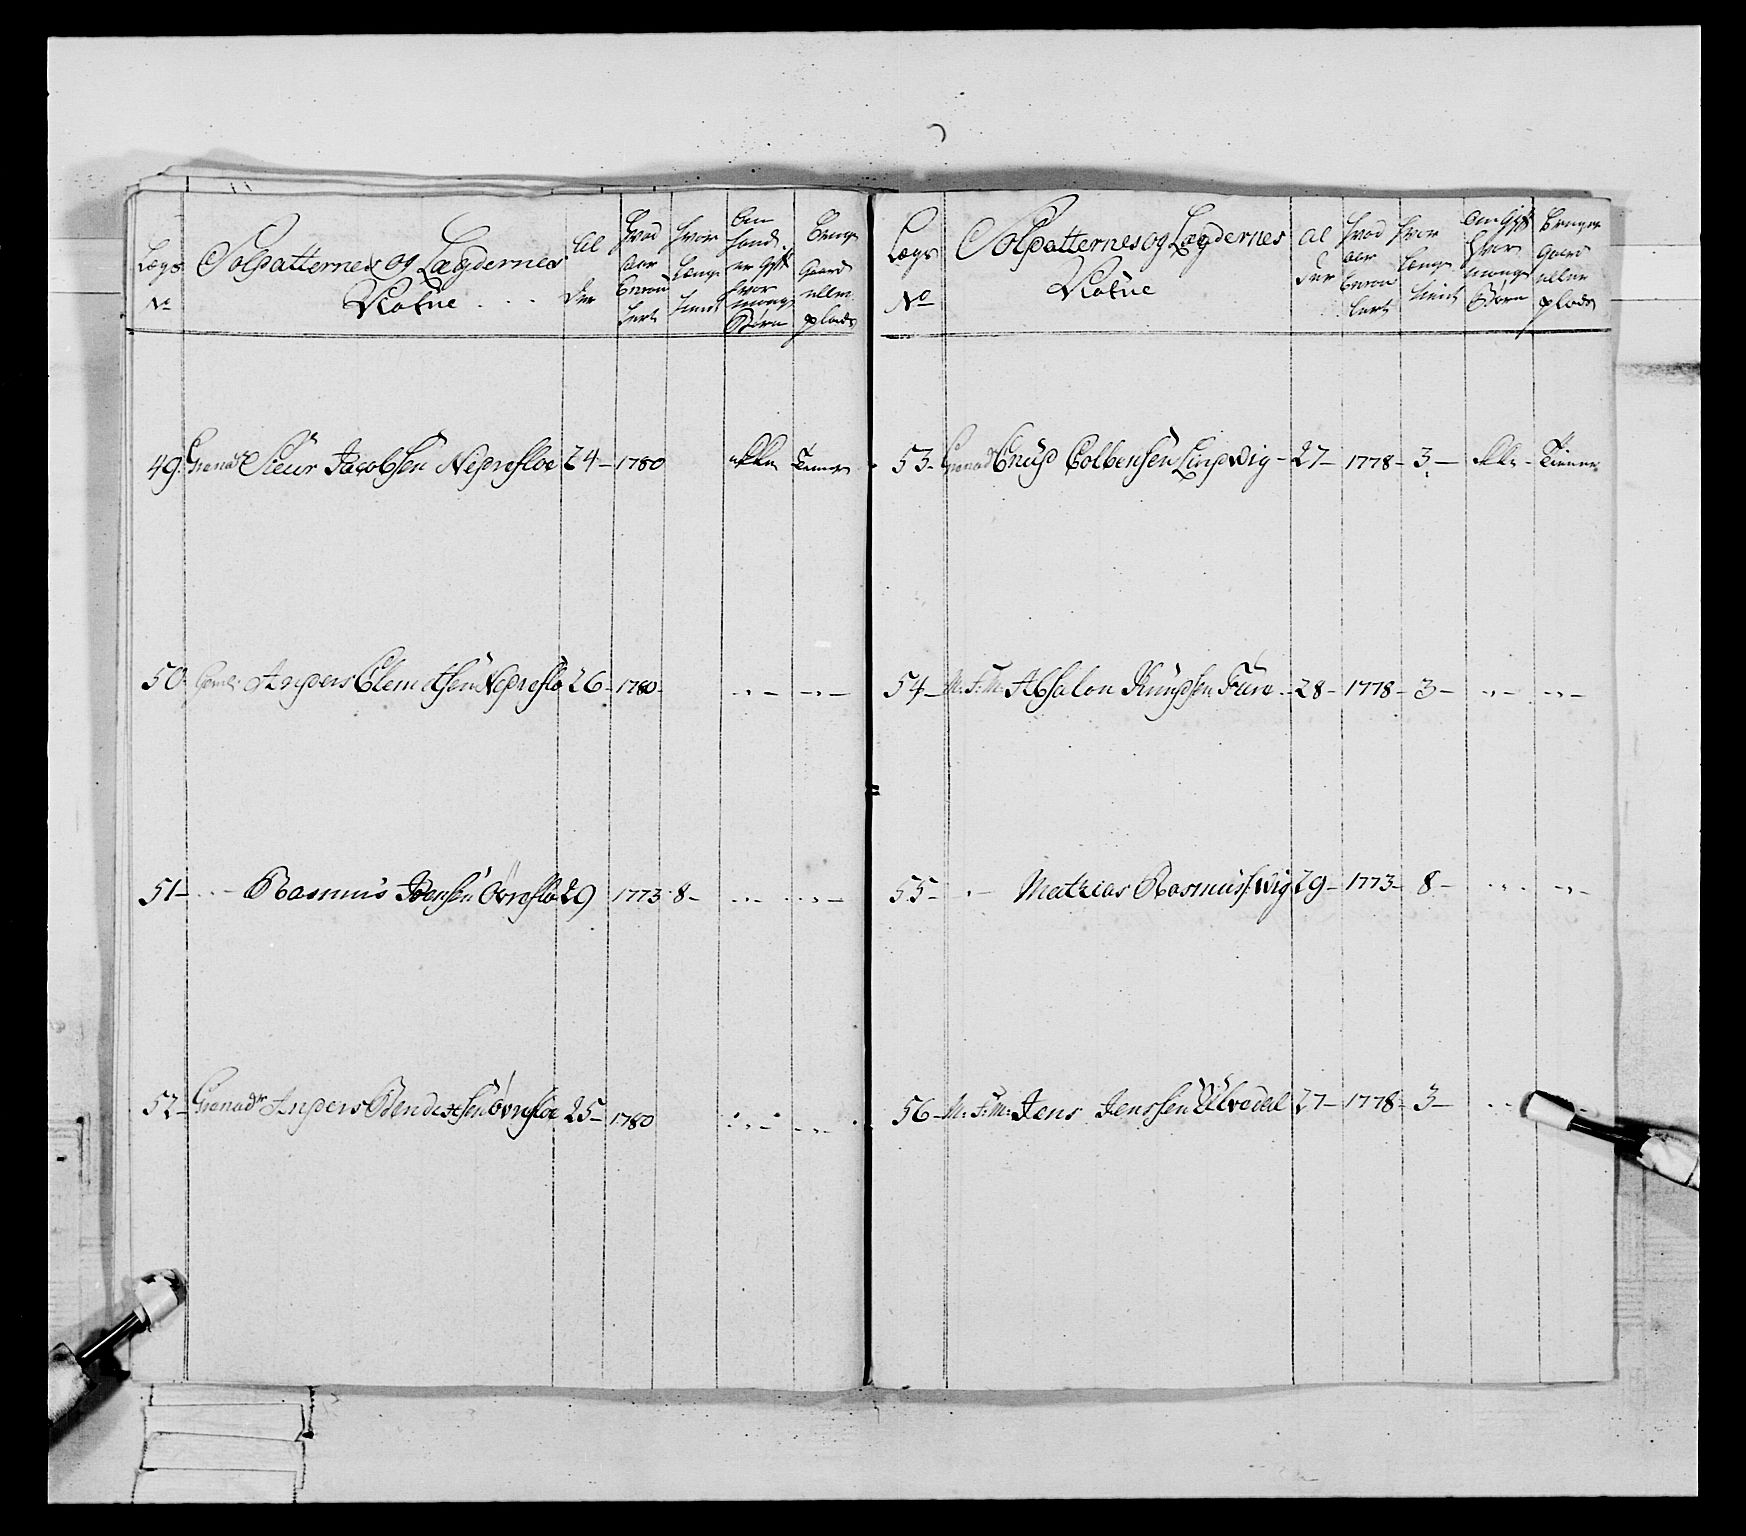 Lægs No
Soldatternes og Lægdernes Nafne
Al der
Hvad Aar Enroulert
Hvor længe tient
Om hand er gift hvor mange Børn
Gaard eller plads
49. Grenadr Siur Jacobsen Nedrefloe 24 – 1780 ikke Tiener
50. Anders Clemetsen Nedreflo 26 – 1780 –
51 – Rasmus Iversen Øvreflo 29 1773 8 –
52 – Grenadr Anders Bendixsen Øvrefloe 25 – 1780
Lægs No
Soldatternes og Lægdernes Nafne
Al der
Hvad Aar Enroulert
Hvor længe tient
Om Gift Hvor mange Børn
Gaard eller plads
53 – Grenadr Knud Colbensen Lindvig – 27 – 1778 – 3 – ikke – Tiener
54 – N. F. M. Absalon Knudsen Fure – 28 – 1778 – 3 –
55 – Mathias Rasmuss. Wig 29 – 1773 – 8 –
56 – N. F. M. Jens Jenssen Ulvedal 27 – 1778 – 3 –